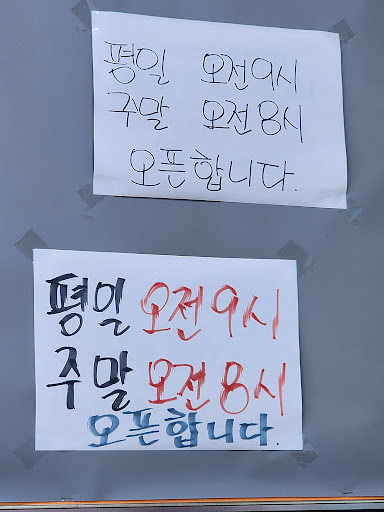 평일 오전 9시
주말 오전 8시
오픈합니다.
평일 오전 9시
주말 오전 8시
오픈합니다.